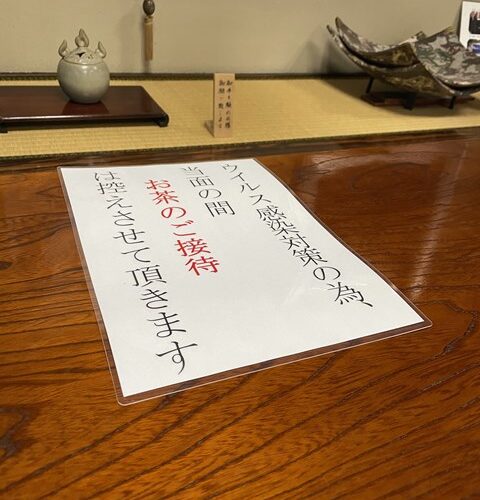 ウイルス感染対策の為、
当面の間
お茶のご接待
は控えさせて頂きます